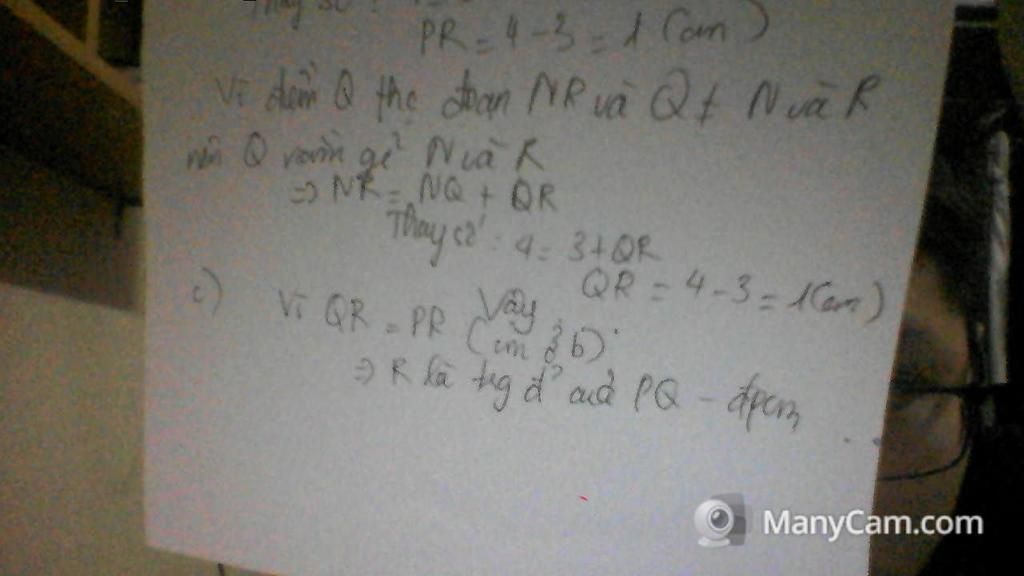 Thay số :
PR = 4 - 3 = 1 (cm)
Vì điểm Q thc đoạn NR và Q ≠ N và R
nên Q nằm giữa N và R
=> NR = NQ + QR
Thay số : 4 = 3 + QR
QR = 4 - 3 = 1 (cm)
Vậy
c) Vì QR = PR (cm ở b)
=> R là tg đ' của PQ - đpcm
ManyCam.com